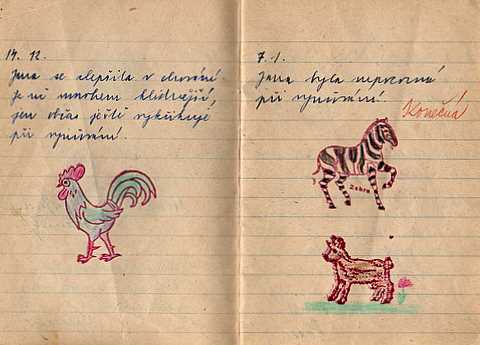 14. 12.
Jana se zlepšila v chování.
Je už mnohem klidnější,
jen občas ještě vykřikuje
při vyučování.
7. 1.
Jana byla nepozorná
při vyučování.
Konečná
Zebra